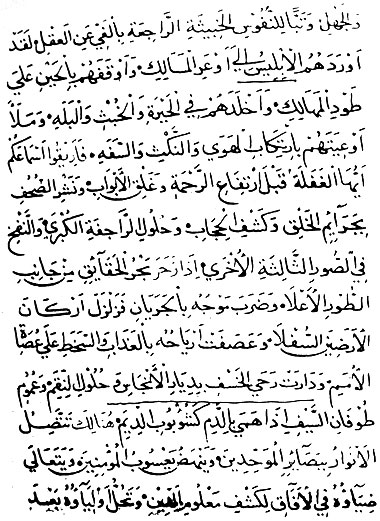 وَالجهْلِ وَتبًّا لِلنُّفُوسِ الخَبيثَةِ الرَّاجِعَةِ بالغَيّ عَنِ العَقلِ لَقَد
أَوْرَدَهُم الإبْلِيسُ إلى أوعَرِ المسَالِكِ وَأوْقَفَهُم بالحَيْنِ عَلَى
طَوْدِ المهَالِكِ وَأخلَدَهُم في الحَيْرةِ وَالخُبْثِ وَالبَلَهِ وَمَلأَ
أوْعِيَتَهُم بارتكَابِ الهَوَى وَالنَّكثِ وَالسَّفَهِ فَارْعُوا أسْمَاعَكُم
أيُّهَا الغَفَلَةُ قَبلَ ارتفَاعِ الرَّحْمَةِ وَغَلقِ الأَبْوَابِ وَنَشْرِ الصُّحُفِ
بِجَرَآيِمِ الخَلْقِ وَكَشْفِ الحِجَابِ وَحُلُولِ الرَّاجِفَةِ الكُبْرَى وَالنَّفْخِ
في الصُّورِ الثَّالثَةِ الأُخْرَى إذَا زَخَرَ بَحْرُ الحَقَآئِقِ مِنْ جَانِبِ
الطُّورِ الأعْلا وَضَرَبَ مَوْجُهُ بالجَرَيَانِ فَزَلْزَلَ أركَانَ
الأَرَضِينَ السُّفْلا وَعَصَفَتْ أرْيَاحُهُ بالعَذَابِ وَالسَّخَطِ عَلَى عُصَاةِ
الأُمَمِ وَدَارَتْ رَحَى الخَسْفِ بدِيَارِ الأنْجَاسِ وَحُلُولُ النِّقَمِ وَعُمُومُ
طُوفَانِ السَّيْفِ إذَا هَمَى بالدَّمِ كَشُؤبُوبِ الدِّيَمِ هُنَالِكَ تَتَّصِلُ
الأنْوَارُ ببَصَايِرِ الموَحِّدِينَ وَيَنْهَضُ يَعْسُوبُ المؤْمِنِينَ وَيَتَعَالَى
ضِيَآؤُهُ في الآفَاقِ لِكَشْفِ مَعْلُومِ وَتَنْحَلُّ أوْليَآؤُهُ بَعْدَ